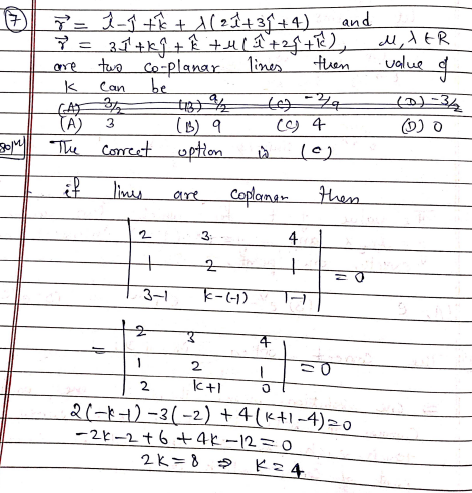 7 r⃗ = î-ĵ+k̂ + λ(2î+3ĵ+4) and
r⃗ = 3î+kĵ+k̂ + μ(î+2ĵ+k̂), μ,λ ∈ R
are two co-planar lines then value of
k can be
(A) 3/2 (B) 9/2 (C) -2/9 (D) -3/2
(A) 3 (B) 9 (C) 4 (D) 0
Solⁿ The correct option is (c)
if lines are coplanar then
| 2 3 4 |
| 1 2 1 | = 0
| 3-1 k-(-1) 1-1 |
= | 2 3 4 |
| 1 2 1 | = 0
| 2 k+1 0 |
2(-k-1) -3(-2) + 4(k+1-4) = 0
-2k-2+6+4k-12 = 0
2k = 8 ⇒ k = 4